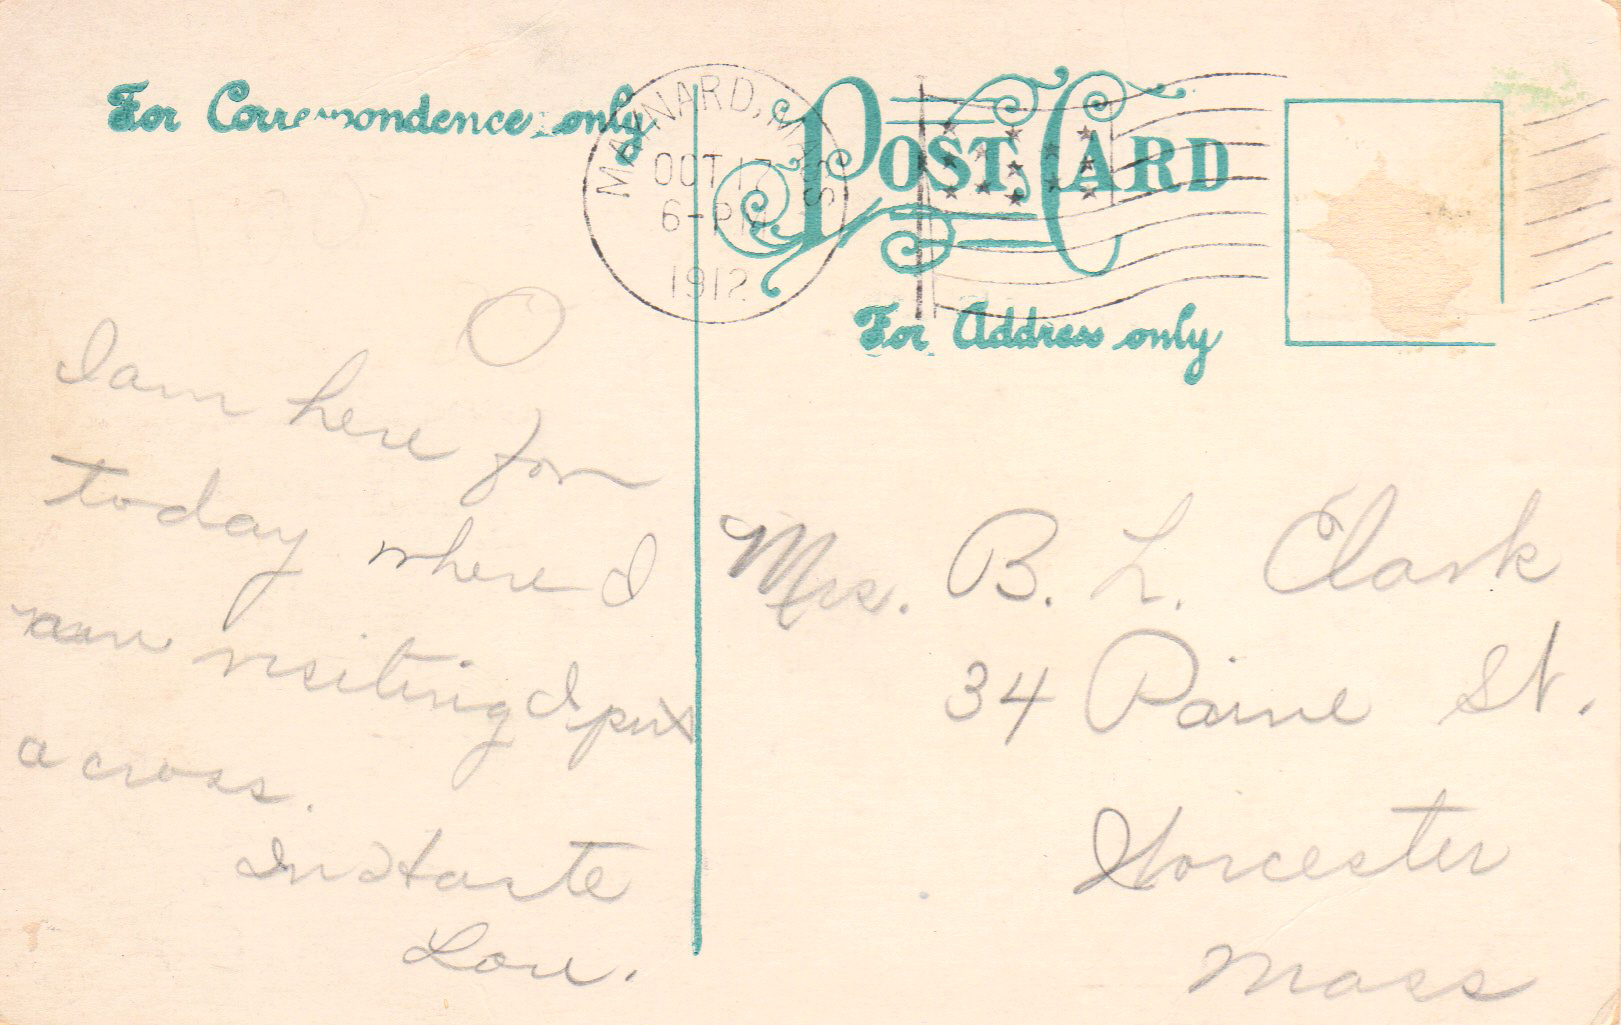 For Correspondence only
MAYNARD, MASS
OCT 17
6-PM
1912
POST CARD
For Address only
I am here for
today where I
am visiting I put
a cross.
In Haste
Lou.
Mrs. B. L. Clark
34 Paine St.
Worcester
Mass